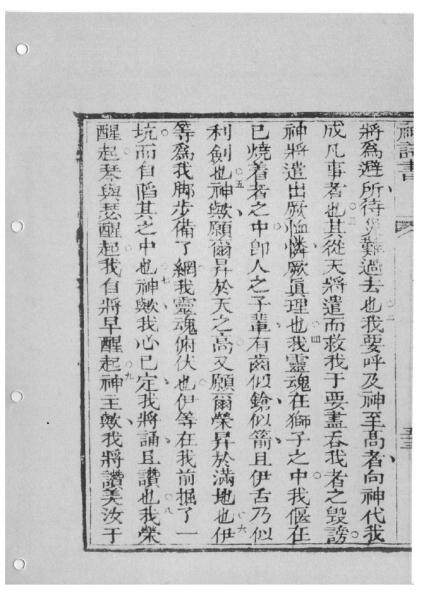 神詩書
五三
將為避所待災難過去也○二我要呼及神至高者向神代我
成凡事者也○三其從天將遣而救我于要盡吞我者之毀謗
神將遣出厥恤憐厥眞理也○四我靈魂在獅子之中我偃在
已燒着者之中卽人之子輩有齒似鎗似箭且伊舌乃似
利劍也○五神歟願爾昇於天之高又願爾榮昇於滿地也○六伊
等為我脚步備了網我靈魂俯伏也伊等在我前掘了一
坑而自陷其之中也○七神歟我心已定我將誦且讚也○八我榮
醒起琴與瑟醒起我自將早醒起○九神主歟我將讚美汝于